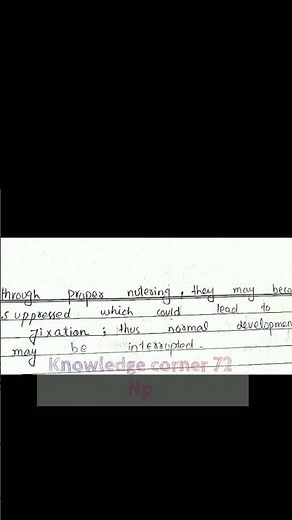 through proper nutering, they may beco
suppressed which could lead to
fixation; thus normal developmen
may be interrupted.
Knowledge corner 72
Np